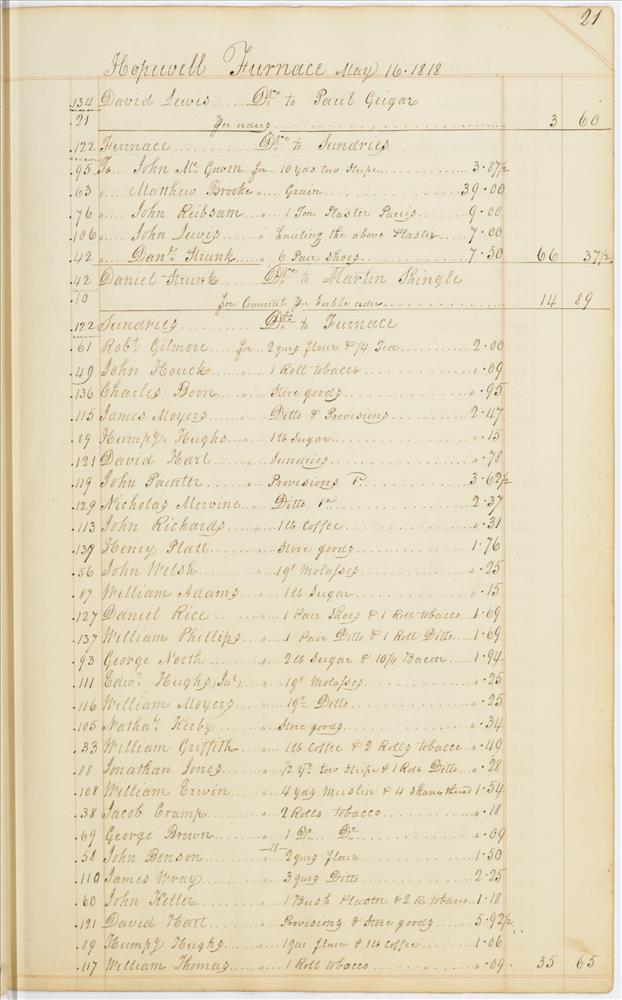 21
Hopewell Furnace May 16. 1818
134 David Lewis Dr. to Paul Geigar
21 Per order 3 60
122 Furnace Dr. to Sundries
95 To John Mc Gowen for 10 yds tow Stripe 3.87½
63 " Matthew Brooke " Grain 39.00
76 " John Reibsam " 1 Ton Plaster Parris 9.00
106 " John Lewis " hauling the above Plaster 7.00
42 " Danl. Strunk " 6 Pair Shoes 7.50 66 37½
42 Daniel Strunk Dr. to Martin Shingle
10 for Amount Per order 14 89
122 Sundries Drs. to Furnace
61 Robt. Gilmore for 2 qurs flour & ¼ Tea 2.00
49 John Houck " 1 Roll tobacco " .09
136 Charles Boon " Store goods " .95
115 James Moyers " Ditto & Provisions 2.47
89 Humpy. Hughs " 1 lb Sugar " .15
121 David Hart " Sundries " .78
119 John Painter " Provisions 3.62½
129 Nicholas Mervine " Ditto 2.37
113 John Richards " 1 lb Coffee " .31
139 Henry Platt " Store goods 1.76
56 John Welsh " 1 qt Molasses " .25
87 William Adams " 1 lb Sugar " .15
127 Daniel Rice " 1 Pair Shoes & 1 Roll tobacco 1.69
137 William Phillips " 1 Pair Ditto & 1 Roll Ditto 1.69
93 George North " 2 lb Sugar & 10¼ Bacon 1.94
111 Edwd. Hughs, Junr. " 1 qt Molasses " .25
116 William Moyers " 1 qt Ditto " .25
105 Nathal. Kerby " Store goods " .34
33 William Griffith " 1 lb Coffee & 2 Rolls tobacco " .49
88 Jonathan Jones " ½ yd. tow Stripe & 1 Roll Ditto " .28
108 William Erwin " 4 yds Muslin & 4 Skans thread 1.54
38 Jacob Cramp " 2 Rolls tobacco " .18
69 George Brown " 1 Do. Do. " .09
18
58 John Benson " 2 qurs flour 1.50
110 James Wray " 3 qurs Ditto 2.25
60 John Keller " 1 Bush Plaster & 2 R tobacco 1.18
121 David Hart " Provisions & Store goods 5.92½
89 Humpy Hughs " 1 qur flour & 1 lb Coffee 1.06
117 William Thomas " 1 Roll tobacco " .09 35 65